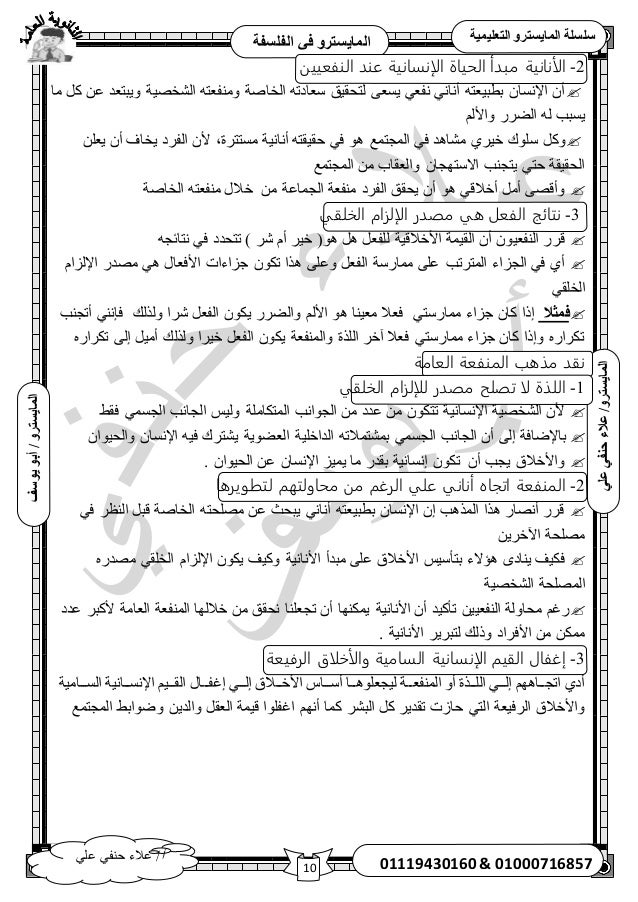 سلسلة المايسترو التعليمية
المايسترو فى الفلسفة
الثانوية العامة
2- الأنانية مبدأ الحياة الإنسانية عند النفعيين
أن الإنسان بطبيعته أناني نفعي يسعى لتحقيق سعادته الخاصة ومنفعته الشخصية ويبتعد عن كل ما
يسبب له الضرر والألم
وكل سلوك خيري مشاهد في المجتمع هو في حقيقته أنانية مستترة، لأن الفرد يخاف أن يعلن
الحقيقة حتي يتجنب الاستهجان والعقاب من المجتمع
وأقصى أمل أخلاقي هو أن يحقق الفرد منفعة الجماعة من خلال منفعته الخاصة
3- نتائج الفعل هي مصدر الإلزام الخلقي
قرر النفعيون أن القيمة الأخلاقية للفعل هل هو( خير أم شر ) تتحدد في نتائجه
أي في الجزاء المترتب على ممارسة الفعل وعلى هذا تكون جزاءات الأفعال هي مصدر الإلزام
الخلقي
فمثلا إذا كان جزاء ممارستي فعلا معينا هو الألم والضرر يكون الفعل شرا ولذلك فإنني أتجنب
تكراره وإذا كان جزاء ممارستي فعلا آخر اللذة والمنفعة يكون الفعل خيرا ولذلك أميل إلى تكراره
نقد مذهب المنفعة العامة
1- اللذة لا تصلح مصدر للإلزام الخلقي
لأن الشخصية الإنسانية تتكون من عدد من الجوانب المتكاملة وليس الجانب الجسمي فقط
بالإضافة إلى أن الجانب الجسمي بمشتملاته الداخلية العضوية يشترك فيه الإنسان والحيوان
والأخلاق يجب أن تكون إنسانية بقدر ما يميز الإنسان عن الحيوان .
2- المنفعة اتجاه أناني علي الرغم من محاولتهم لتطويرها
قرر أنصار هذا المذهب إن الإنسان بطبيعته أناني يبحث عن مصلحته الخاصة قبل النظر في
مصلحة الآخرين
فكيف ينادى هؤلاء بتأسيس الأخلاق على مبدأ الأنانية وكيف يكون الإلزام الخلقي مصدره
المصلحة الشخصية
رغم محاولة النفعيين تأكيد أن الأنانية يمكنها أن تجعلنا نحقق من خلالها المنفعة العامة لأكبر عدد
ممكن من الأفراد وذلك لتبرير الأنانية .
3- إغفال القيم الإنسانية السامية والأخلاق الرفيعة
أدي اتجـاههم إلـي اللـذة أو المنفعـة ليجعلوهـا أسـاس الأخـلاق إلـي إغفـال القـيم الإنسـانية السـامية
والأخلاق الرفيعة التي حازت تقدير كل البشر كما أنهم اغفلوا قيمة العقل والدين وضوابط المجتمع
المايسترو/ علاء حنفي علي
المايسترو / أبو يوسف
01119430160 & 01000716857
10
/ علاء حنفي علي